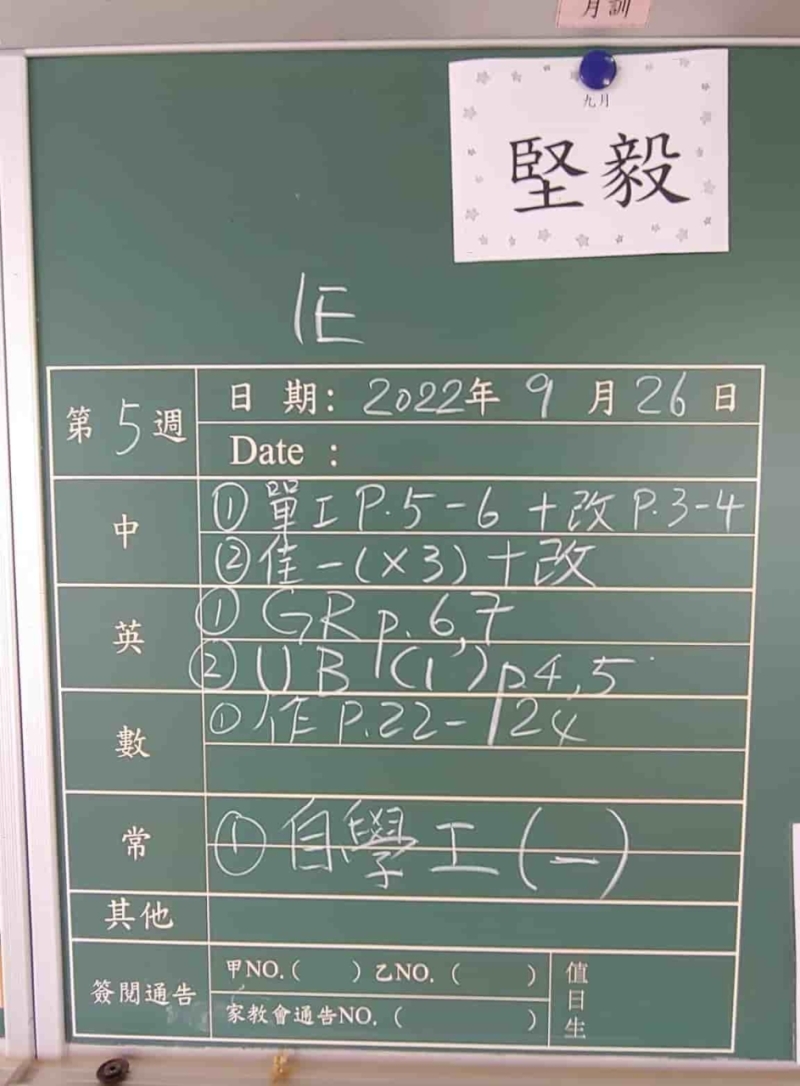 月訓
九月
堅毅
1E
第5週
日期: 2022年9月26日
Date :
中
① 單工 P.5-6 + 改 P.3-4
② 佳一(×3)+改
英
① GR p.6,7
② UB (1) p.4,5
數
① 作 P.22-24
常
① 自學工(一)
其他
簽閱通告
甲NO.( ) 乙NO.( )
家教會通告NO.( )
值日生